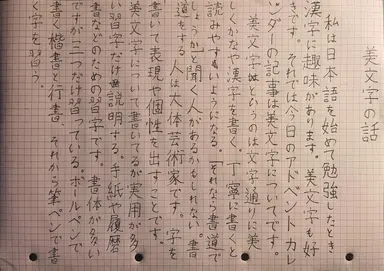 美文字の話
私は日本語を始めて勉強したとき
漢字に趣味があります。美文字も好
きです。それでは今日のアドベントカレ
ンダーの記事は美文字についてです。
美文字というのは文字通りに美
しくかなや漢字を書く、丁寧に書くと
読みやすいようになる。「それなら書道で
しょうか」と聞く人があるかもしれない。書
道をする人は大体芸術家です。字を
書いて表現や個性を出すことです。
美文字について書いてるが実用が多
い習字だけ説明する。手紙や履歴
書などのための習字です。書体が多い
ですが三つだけ習っている。ボールペンで
書く楷書と行書、それから筆ペンで書
く字を習う。